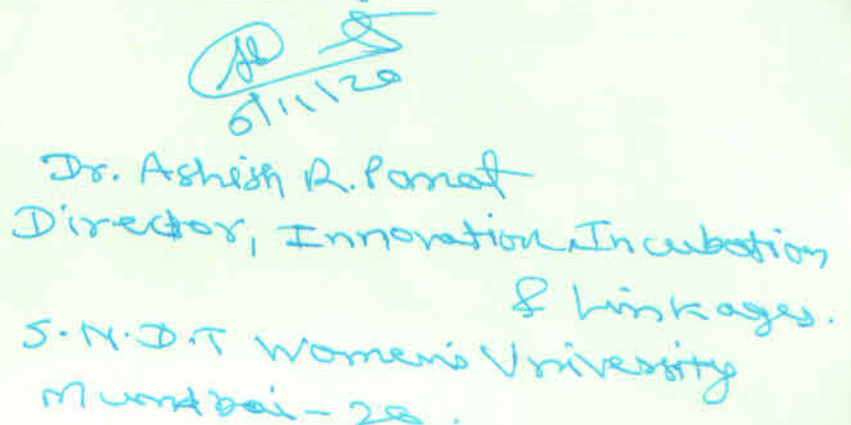 6/11/20
Dr. Ashish R. Panat
Director, Innovation, Incubation
& Linkages.
S.N.D.T Women's University
Mumbai-20.